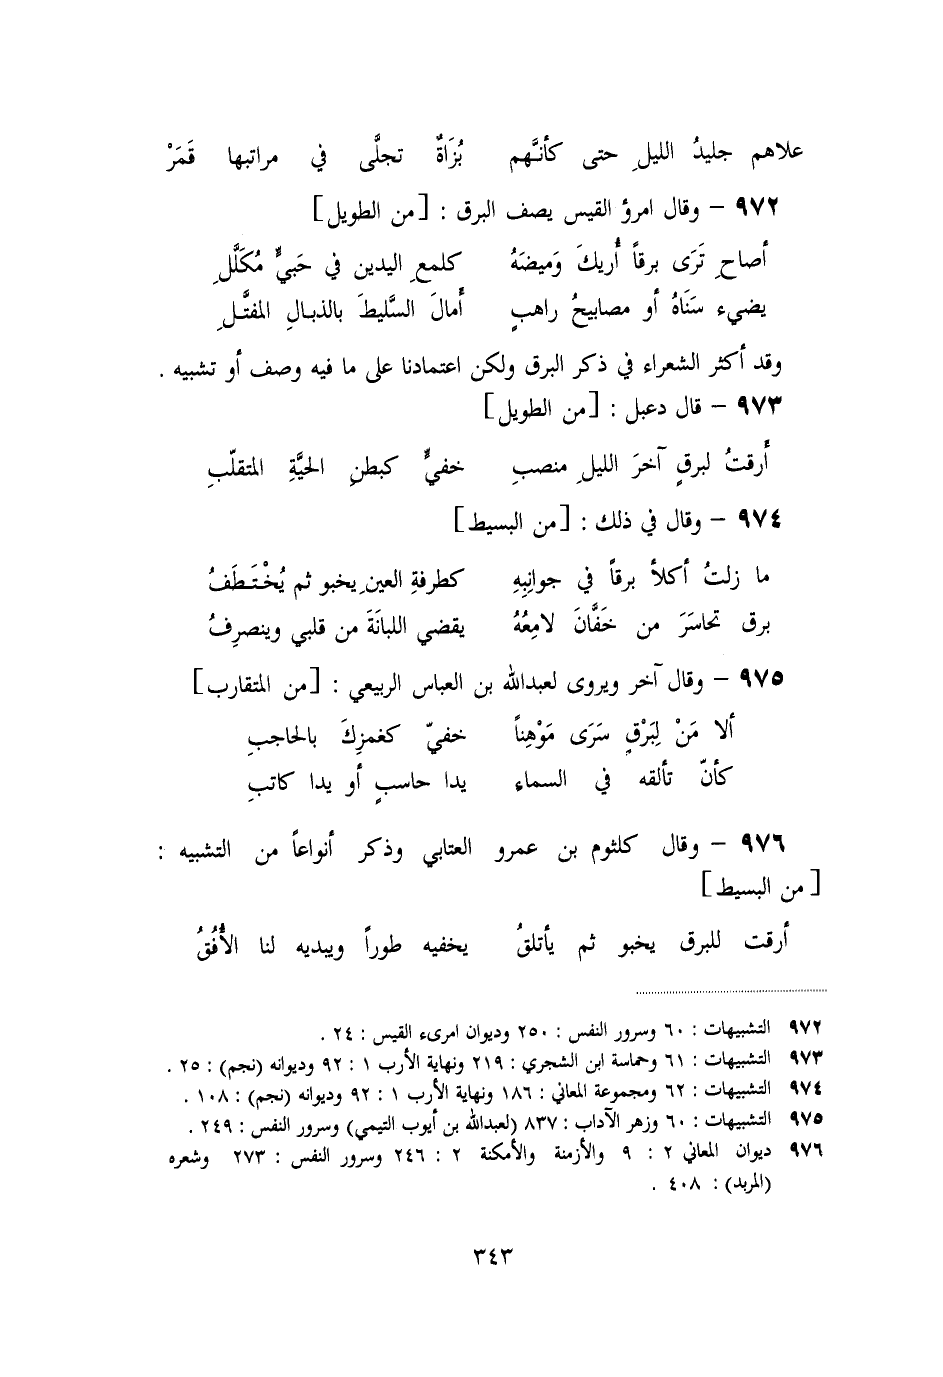 علاهم جليدُ الليلِ حتى كأنهم بُزَاةٌ تجلَّى في مراتبها قَمَرْ
٩٧٢ – وقال امرؤ القيس يصف البرق : [من الطويل]
أصاحِ تَرَى برقاً أُريكَ وَميضَهُ كلمعِ اليدين في حَبيٍّ مُكَلَّلِ
يضيء سَنَاهُ أو مصابيحُ راهبٍ أَمالَ السَّليطَ بالذبالِ المفتَّلِ
وقد أكثر الشعراء في ذكر البرق ولكن اعتمادنا على ما فيه وصف أو تشبيه .
٩٧٣ – قال دعبل : [من الطويل]
أَرقتُ لبرقٍ آخرَ الليلِ منصبِ خفيٍّ كبطنِ الحيَّةِ المتقلّبِ
٩٧٤ – وقال في ذلك : [من البسيط]
ما زلتُ أكلأ برقاً في جوانِبِهِ كطرفةِ العينِ يخبو ثم يُخْتَطَفُ
برق تحاسَرَ من خَفَّانَ لامِعُهُ يقضي اللبانَةَ من قلبي وينصرِفُ
٩٧٥ – وقال آخر ويروى لعبدالله بن العباس الربيعي : [من المتقارب]
ألا مَنْ لِبَرْقٍ سَرَى مَوْهِناً خفيّ كغمزِكَ بالحاجبِ
كأنّ تألقه في السماءِ يدا حاسبٍ أو يدا كاتبِ
٩٧٦ – وقال كلثوم بن عمرو العتابي وذكر أنواعاً من التشبيه :
[من البسيط]
أرقت للبرق يخبو ثم يأتلقُ يخفيه طوراً ويبديه لنا الأُفُقُ
٩٧٢ التشبيهات : ٦٠ وسرور النفس : ٢٥٠ وديوان امرىء القيس : ٢٤ .
٩٧٣ التشبيهات : ٦١ وحماسة ابن الشجري : ٢١٩ ونهاية الأرب ١ : ٩٢ وديوانه (نجم) : ٢٥ .
٩٧٤ التشبيهات : ٦٢ ومجموعة المعاني : ١٨٦ ونهاية الأرب ١ : ٩٢ وديوانه (نجم) : ١٠٨ .
٩٧٥ التشبيهات : ٦٠ وزهر الآداب : ٨٣٧ (لعبدالله بن أيوب التيمي) وسرور النفس : ٢٤٩ .
٩٧٦ ديوان المعاني ٢ : ٩ والأزمنة والأمكنة ٢ : ٢٤٦ وسرور النفس : ٢٧٣ وشعره
(المربد) : ٤٠٨ .
٣٤٣